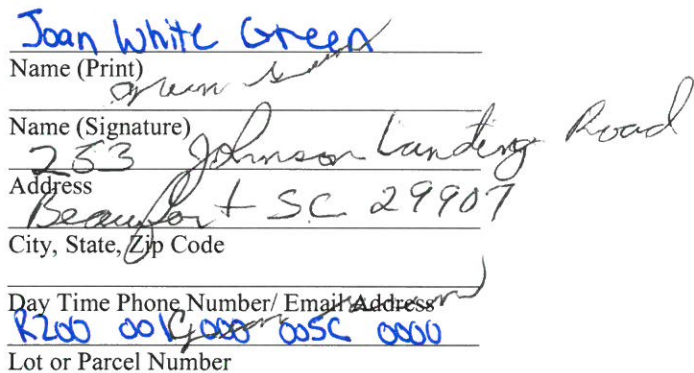 Joan White Green
Name (Print)
Name (Signature)
253 Johnson Landing Road
Address
Beaufort SC 29907
City, State, Zip Code
Day Time Phone Number/ Email Address
R200 001 000 005C 0000
Lot or Parcel Number